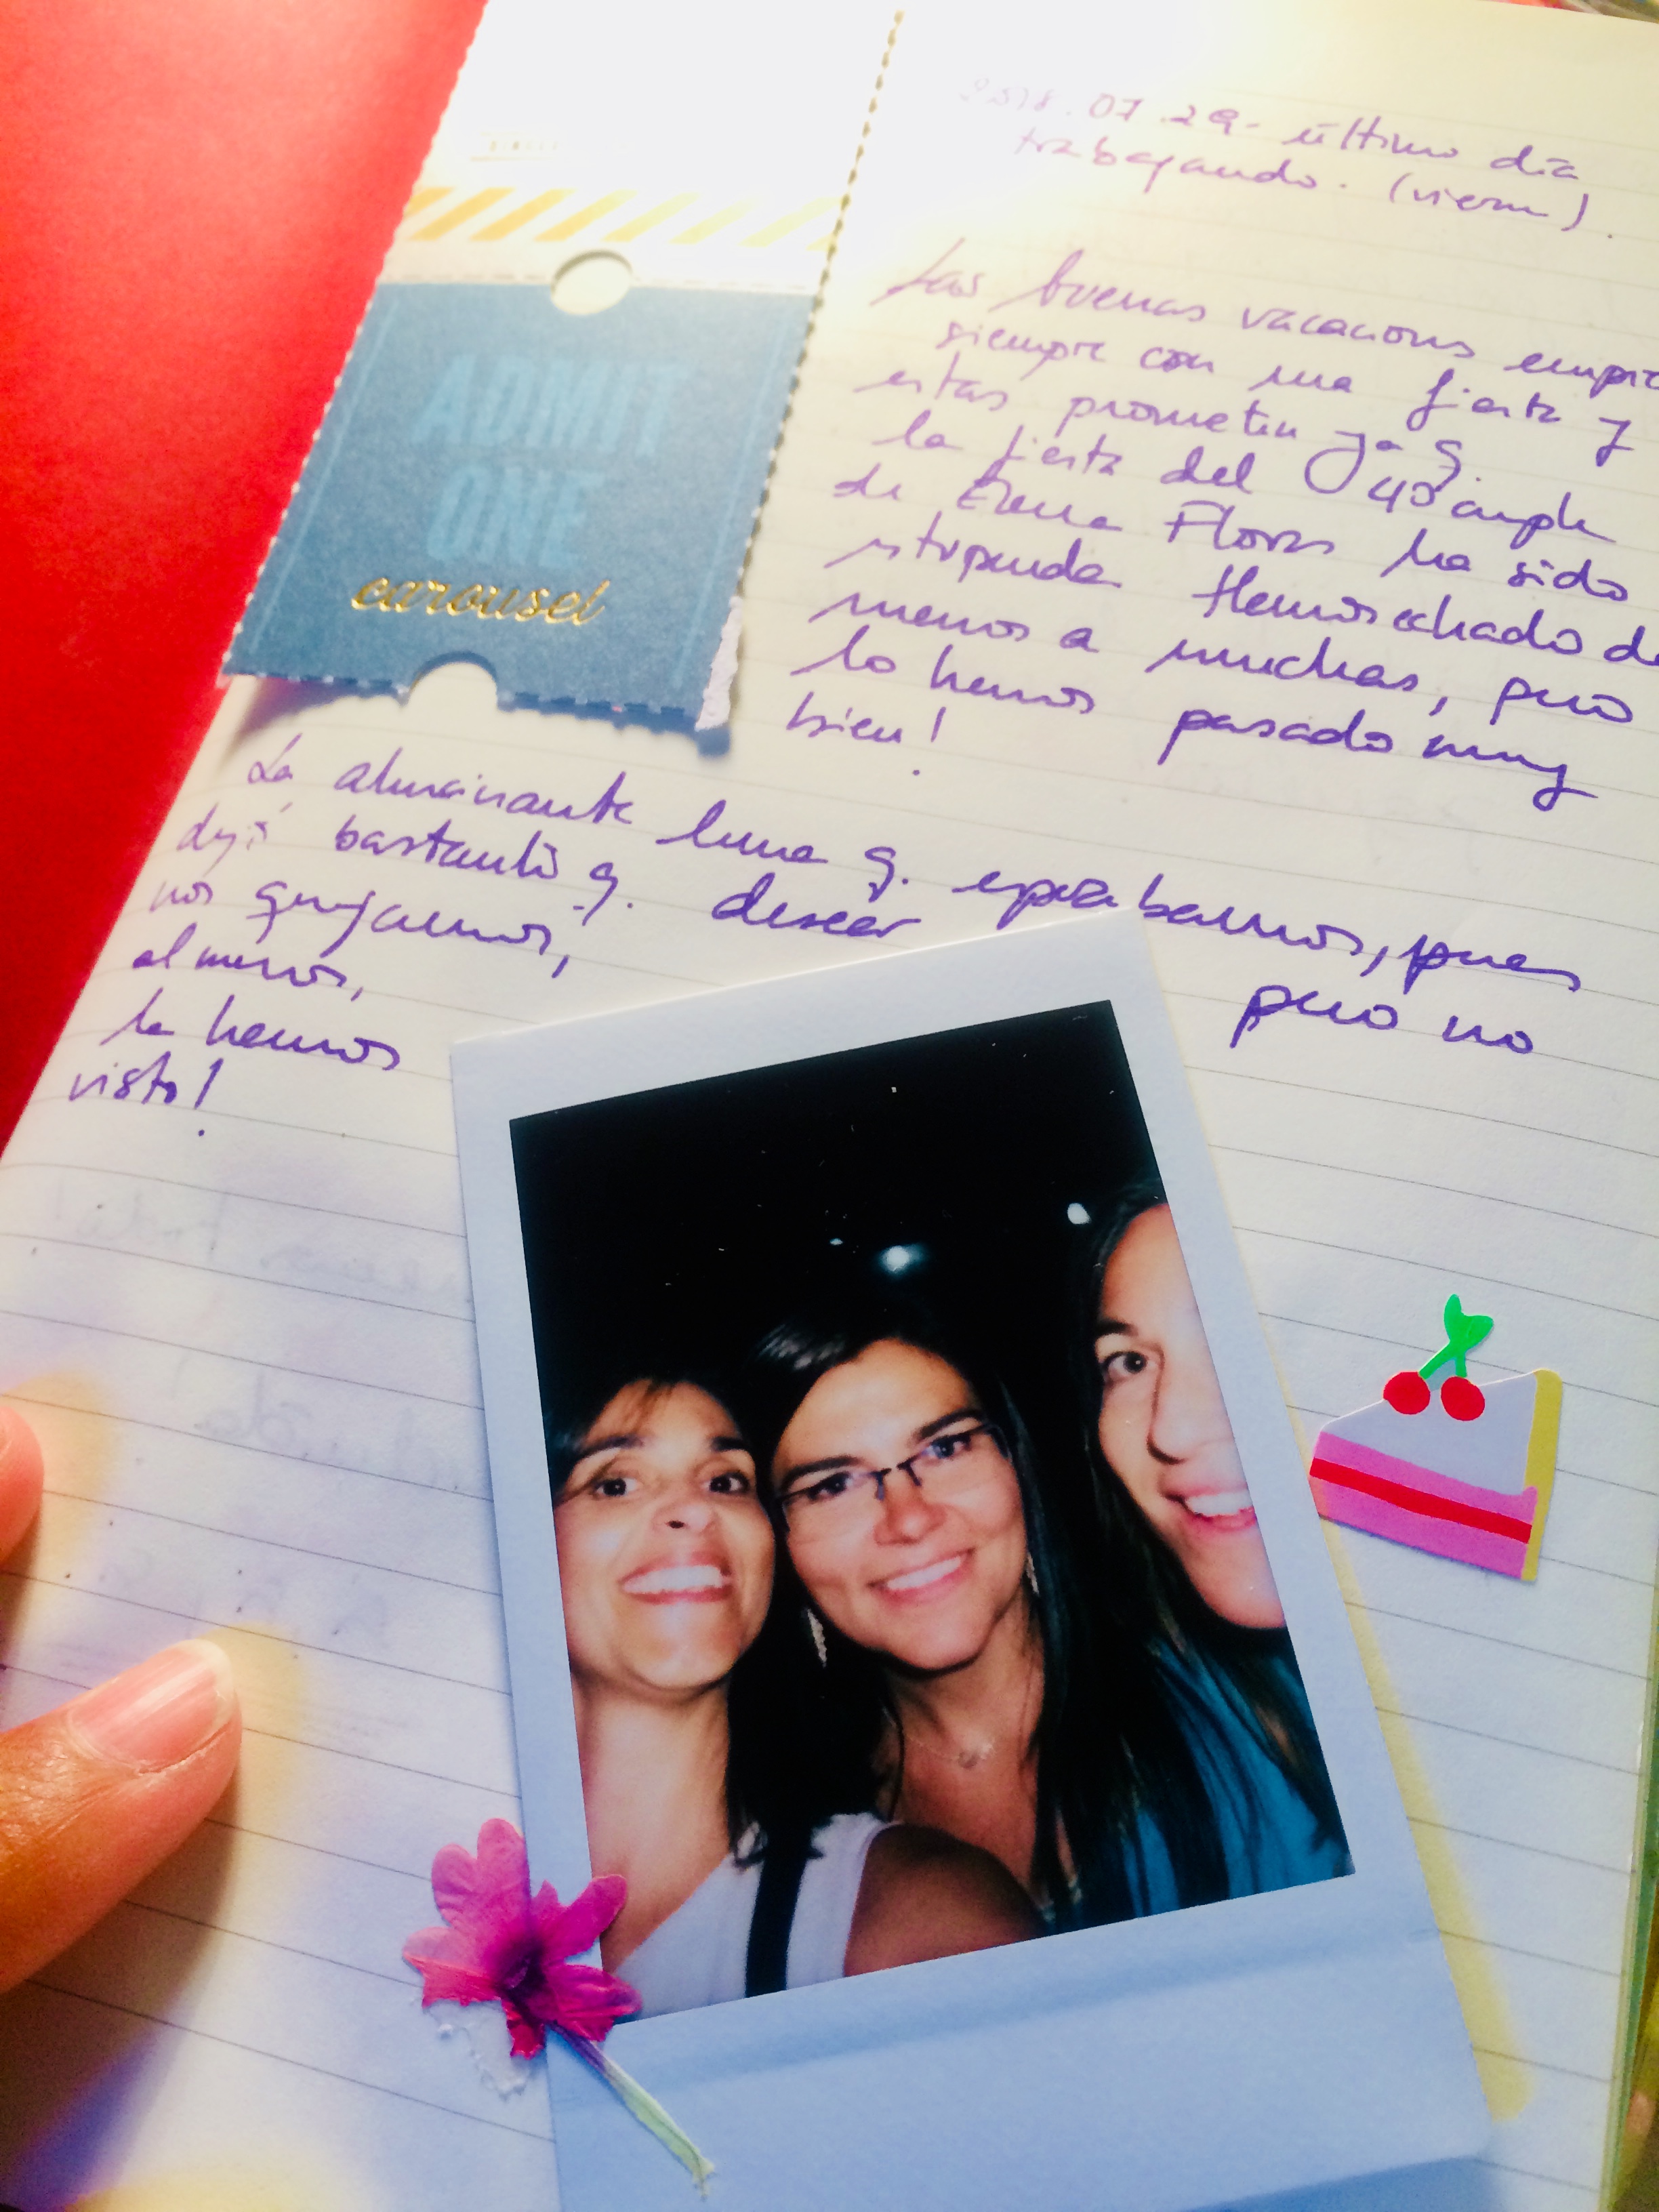 ADMIT
ONE
carousel
2018.07.29- último día
trabajando. (viern).
Las buenas vacacions empie
siempre con una fiesta y
estas prometen ya q
la fiesta del 40 cumple
de Elena Flores ha sido
estupenda. Hemos echado de
menos a muchas, pero
lo hemos pasado muy
bien!
La alucinante luna q. esperabamos, pues
dejó bastante q. desear pero no
nos quejamos,
al menos,
la hemos
visto!